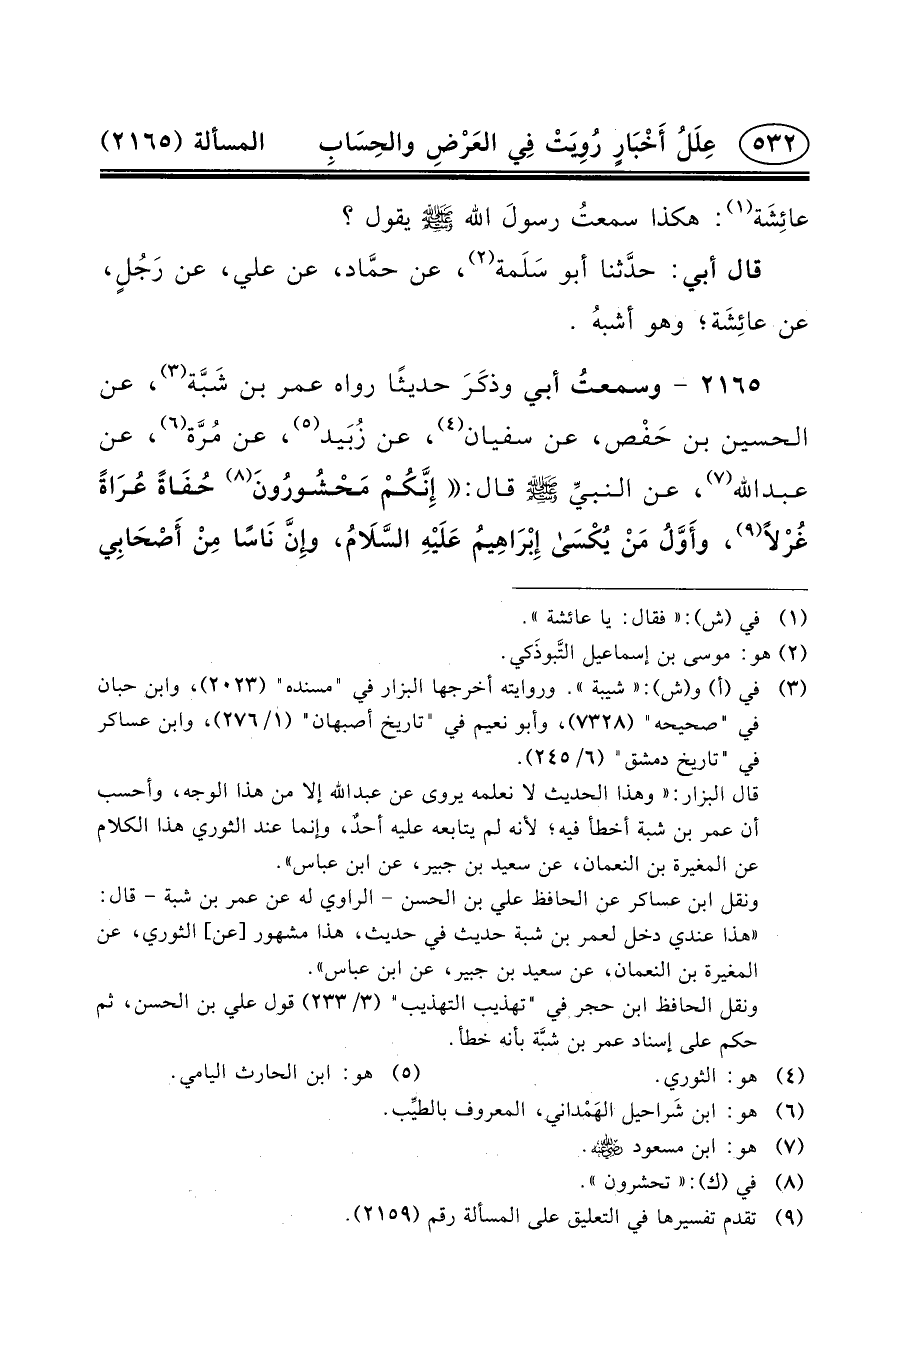 ٥٣٢ عِلَلُ أَخْبَارٍ رُوِيَتْ فِي العَرْضِ والحِسَابِ المسألة (٢١٦٥)
عائِشَة(١): هكذا سمعتُ رسولَ الله ﷺ يقول ؟
قال أبي: حدَّثنا أبو سَلَمة(٢)، عن حمَّاد، عن علي، عن رَجُلٍ،
عن عائِشَة؛ وهو أشبهُ .
٢١٦٥ - وسمعتُ أبي وذكَرَ حديثًا رواه عمر بن شَبَّة(٣)، عن
الحسين بن حَفْص، عن سفيان(٤)، عن زُبَيد(٥)، عن مُرَّة(٦)، عن
عبدالله(٧)، عن النبيِّ ﷺ قال:« إِنَّكُمْ مَحْشُورُونَ(٨) حُفَاةً عُرَاةً
غُرْلاً(٩)، وأَوَّلُ مَنْ يُكْسَىٰ إِبْرَاهِيمُ عَلَيْهِ السَّلَامُ، وإِنَّ نَاسًا مِنْ أَصْحَابِي
(١) في (ش):« فقال: يا عائشة ».
(٢) هو: موسى بن إسماعيل التَّبوذَكي.
(٣) في (أ) و(ش):« شيبة ». وروايته أخرجها البزار في "مسنده" (٢٠٢٣)، وابن حبان
في "صحيحه" (٧٣٢٨)، وأبو نعيم في "تاريخ أصبهان" (١/ ٢٧٦)، وابن عساكر
في "تاريخ دمشق" (٦/ ٢٤٥).
قال البزار:« وهذا الحديث لا نعلمه يروى عن عبدالله إلا من هذا الوجه، وأحسب
أن عمر بن شبة أخطأ فيه؛ لأنه لم يتابعه عليه أحدٌ، وإنما عند الثوري هذا الكلام
عن المغيرة بن النعمان، عن سعيد بن جبير، عن ابن عباس».
ونقل ابن عساكر عن الحافظ علي بن الحسن - الراوي له عن عمر بن شبة - قال:
«هذا عندي دخل لعمر بن شبة حديث في حديث، هذا مشهور [عن] الثوري، عن
المغيرة بن النعمان، عن سعيد بن جبير، عن ابن عباس».
ونقل الحافظ ابن حجر في "تهذيب التهذيب" (٣/ ٢٣٣) قول علي بن الحسن، ثم
حكم على إسناد عمر بن شبَّة بأنه خطأ.
(٤) هو: الثوري. (٥) هو: ابن الحارث اليامي.
(٦) هو: ابن شَراحيل الهَمْداني، المعروف بالطيِّب.
(٧) هو: ابن مسعود رضي الله عنه.
(٨) في (ك):« تحشرون ».
(٩) تقدم تفسيرها في التعليق على المسألة رقم (٢١٥٩).